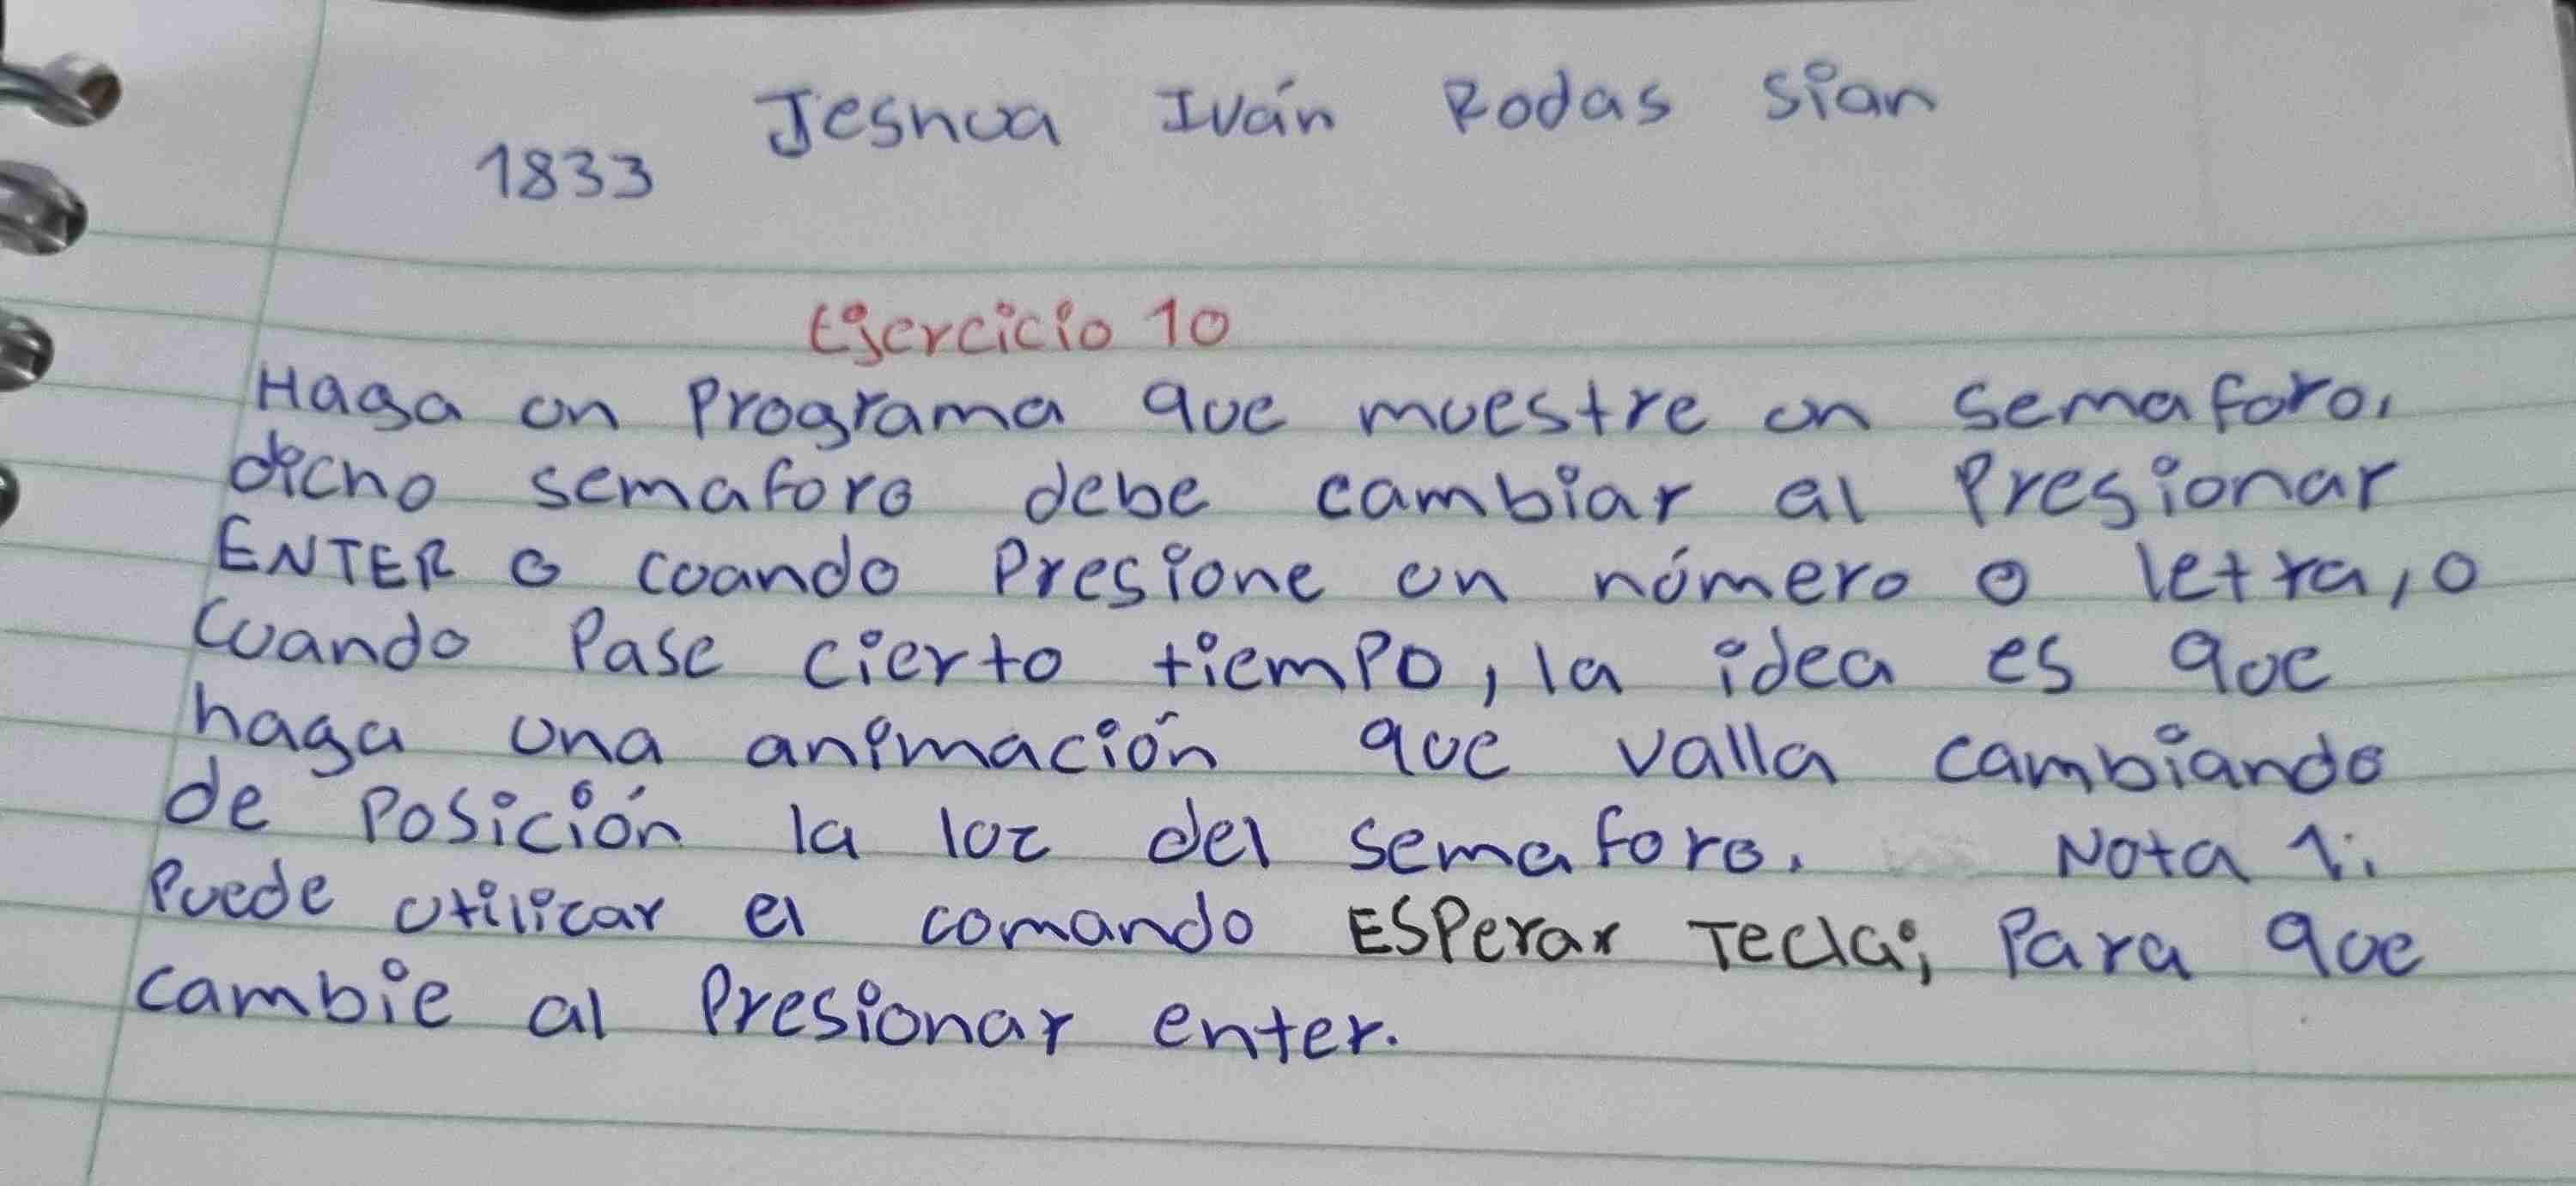 Jeshua Iván Rodas Sian
1833
Ejercicio 10
Haga un Programa que muestre un semaforo,
dicho semaforo debe cambiar al Presionar
ENTER o cuando Presione un número o letra, o
cuando Pase cierto tiempo, la idea es que
haga una animación que valla cambiando
de Posición la luz del semaforo. Nota 1:
Puede utilizar el comando Esperar Tecla; Para que
cambie al Presionar enter.